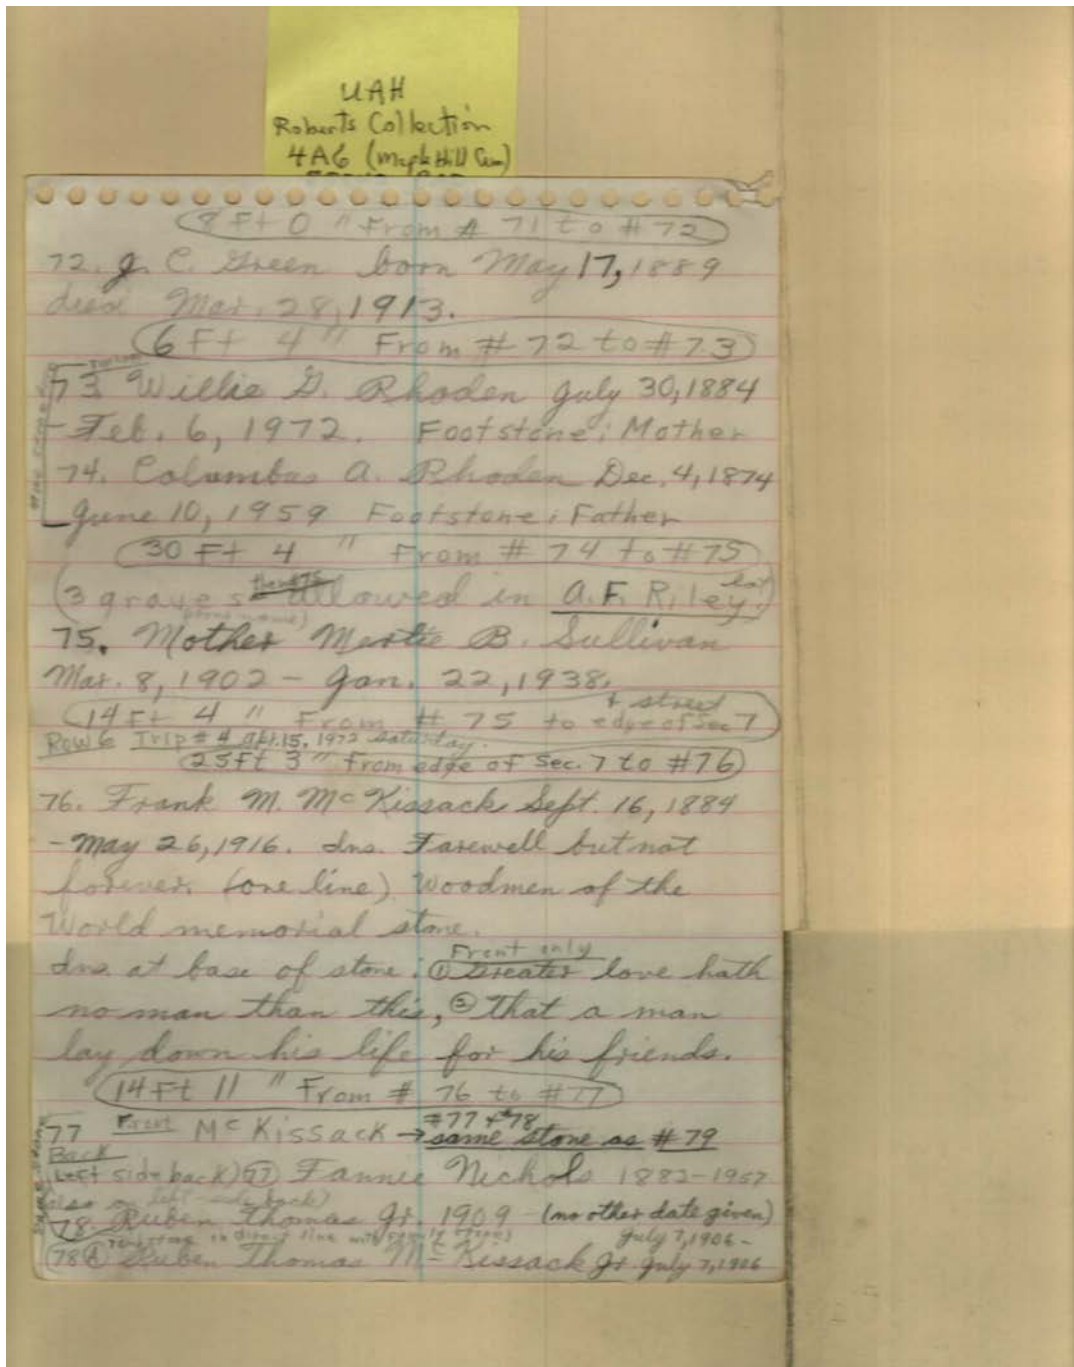 UAH
Roberts Collection
4A6 (Maple Hill Cem)
8 Ft 0 " From # 71 to # 72
72. J. C. Green born May 17, 1889
died Mar. 28, 1913.
6 Ft 4 " From # 72 to # 73
73 Willie G. Rhoden July 30, 1884
- Feb. 6, 1972. Footstone: Mother
74. Columbus A. Rhoden Dec. 4, 1874
June 10, 1959 Footstone: Father
30 Ft 4 " From # 74 to #75
(3 graves allowed in A. F. Riley lot)
75. Mother Mertie B. Sullivan
Mar. 8, 1902 - Jan. 22, 1938.
14 Ft 4 " From # 75 to edge of Sec 7 + street
Row 6 Trip # 4 Apr. 15, 1972 Saturday.
25 ft 3 " from edge of Sec. 7 to #76
76. Frank M. McKissack Sept. 16, 1884
- May 26, 1916. Ins. Farewell but not
forever. (one line) Woodmen of the
World memorial stone.
Front only
Ins. at base of stone: ① Greater love hath
no man than this, ② That a man
lay down his life for his friends.
14 Ft 11 " From # 76 to #77
#77 + #78
77 Front McKissack → same stone as # 79
Back
Left side back) 77 Fannie Nichols 1883-1957
(also on left side back)
78. Ruben Thomas Jr. 1909 - (no other date given)
in direct line with family stone)
July 7, 1906 -
78A Ruben Thomas McKissack Jr. July 7, 1906